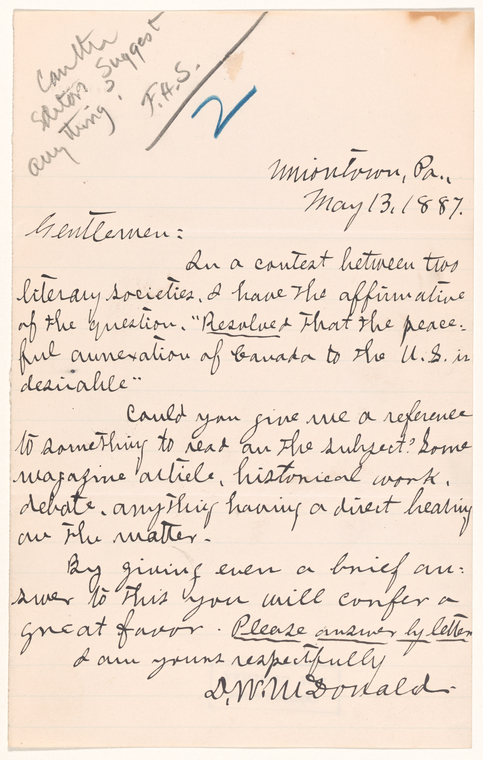 Can the
Editors Suggest
anything?
F.A.S.
2
Uniontown, Pa.,
May 13, 1887.
Gentlemen:
In a contest between two
literary societies, I have the affirmative
of the question, "Resolved that the peace-
ful annexation of Canada to the U.S. is
desirable"
Could you give me a reference
to something to read on the subject? Some
magazine article, historical work,
debate, anything having a direct bearing
on the matter.
By giving even a brief an-
swer to this you will confer a
great favor. Please answer by letter
I am yours respectfully
D.W. McDonald.